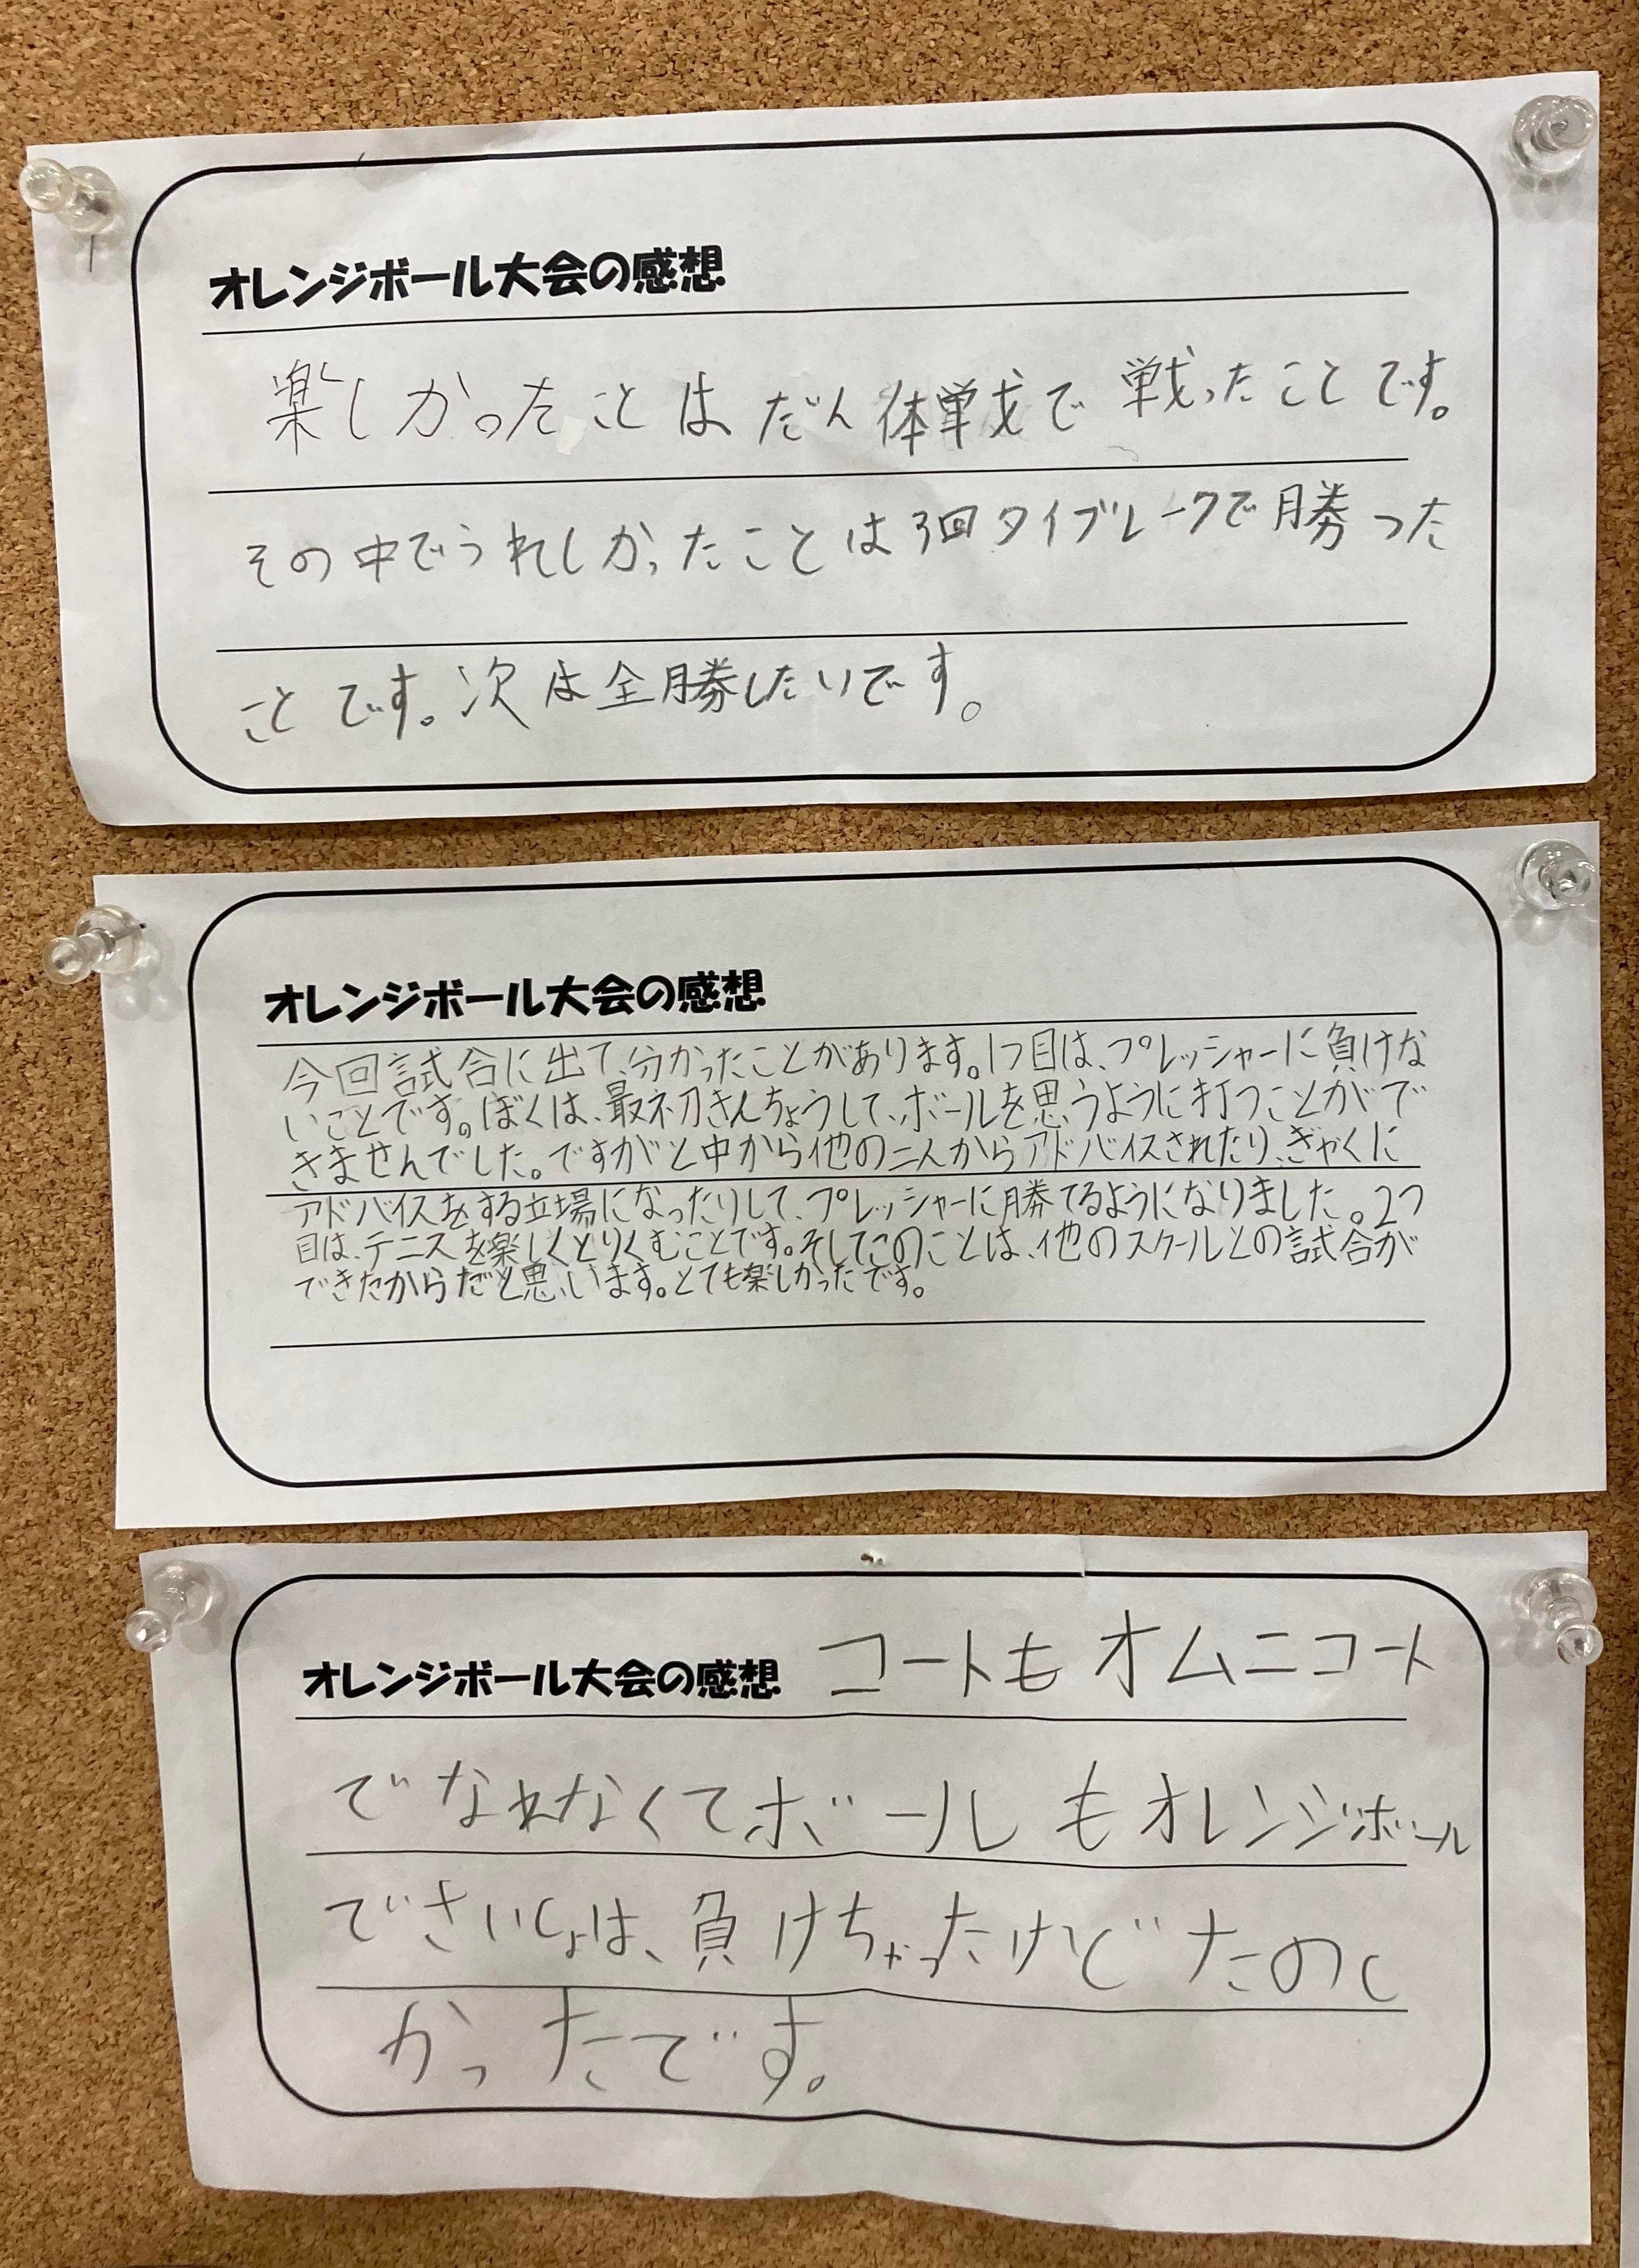 オレンジボール大会の感想
楽しかったことは、だん体戦で戦ったことです。
その中でうれしかったことは3回タイブレークで勝った
ことです。次は全勝したいです。
オレンジボール大会の感想
今回試合に出て、分かったことがあります。1つ目は、プレッシャーに負けな
いことです。ぼくは、最初きんちょうして、ボールを思うように打つことがで
きませんでした。ですがと中から他の二人からアドバイスされたり、ぎゃくに
アドバイスをする立場になったりして、プレッシャーに勝てるようになりました。2つ
目は、テニスを楽しくとりくむことです。そしてこのことは、他のスクールとの試合が
できたからだと思います。とても楽しかったです。
オレンジボール大会の感想 コートもオムニコート
でなれなくてボールもオレンジボール
でさいしょは、負けちゃったけどたのし
かったです。